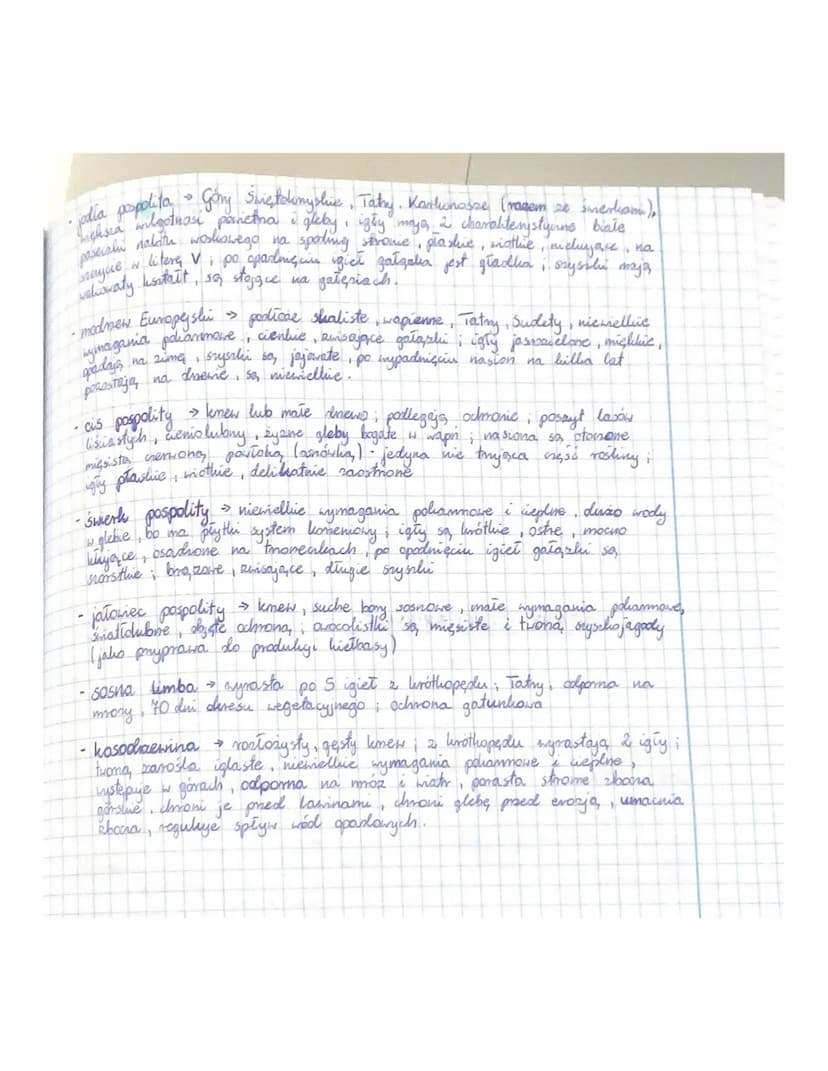 - jodła pospolita → Góry Świętokrzyskie, Tatry, Karkonosze (razem ze świerkami),
większa wilgotność powietrza i gleby, igły mają 2 charakterystyczne białe
paseczki nalotu woskowego na spodniej stronie, płaskie, wiotkie, niekłujące, na
szczycie w literę V; po opadnięciu igieł gałązka jest gładka; szyszki mają
walcowaty kształt, są stojące na gałęziach.
- modrzew Europejski → podłoże skaliste, wapienne, Tatry, Sudety, niewielkie
wymagania pokarmowe, cienkie, zwisające gałązki; igły jasnozielone, miękkie,
opadają na zimę, szyszki są jajowate, po wypadnięciu nasion na kilka lat
pozostają na drzewie, są niewielkie.
- cis pospolity → krzew lub małe drzewo; podlegają ochronie; poszyt lasów
liściastych, cieniolubny, żyzne gleby bogate w wapń; nasiona są otoczone
mięsistą czerwoną powłoką (osnówką) - jedyna nie trująca część rośliny;
igły płaskie, wiotkie, delikatnie zaostrzone
- świerk pospolity → niewielkie wymagania pokarmowe i cieplne, dużo wody
w glebie, bo ma płytki system korzeniowy; igły są krótkie, ostre, mocno
kłujące, osadzone na trzoneczkach, po opadnięciu igieł gałązki są
szorstkie; brązowe, zwisające, długie szyszki
- jałowiec pospolity → krzew, suche bory sosnowe, małe wymagania pokarmowe,
światłolubne, objęte ochroną; owocolistki są mięsiste i tworzą szyszkojagody
(jako przyprawa do produkcji kiełbasy)
- sosna limba → wyrasta po 5 igieł z krótkopędu; Tatry, odporna na
mrozy, 70 dni okresu wegetacyjnego; ochrona gatunkowa
- kosodrzewina → rozłożysty, gęsty krzew; z krótkopędu wyrastają 2 igły;
tworzą zarośla iglaste, niewielkie wymagania pokarmowe i cieplne,
występuje w górach, odporna na mróz i wiatr, porasta strome zbocza
górskie, chroni je przed lawinami, chroni glebę przed erozją, umacnia
zbocza, reguluje spływ wód opadowych.